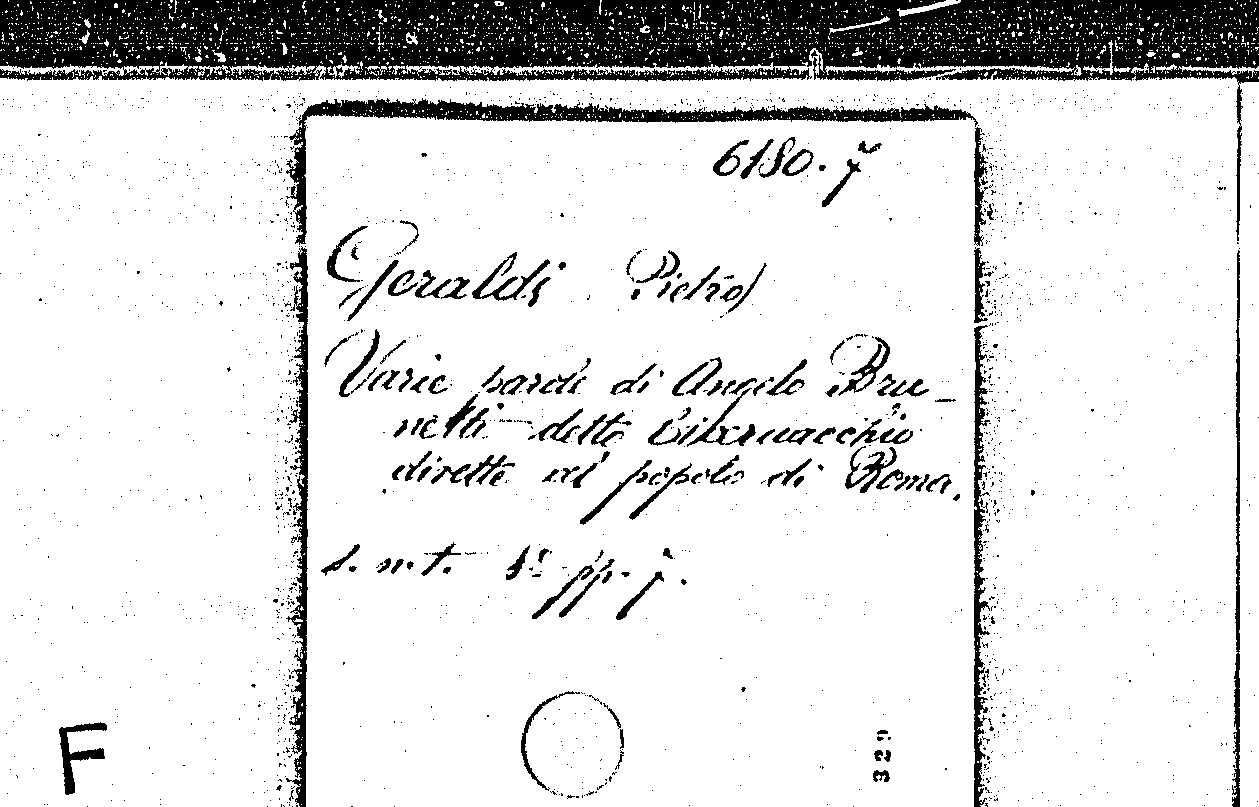 6180.7
Geraldi Pietro)
Varie parole di Angelo Bru-
netti detto Ciceruacchio
dirette al popolo di Roma.
s. n. t. 8º pp. 7.
F
329